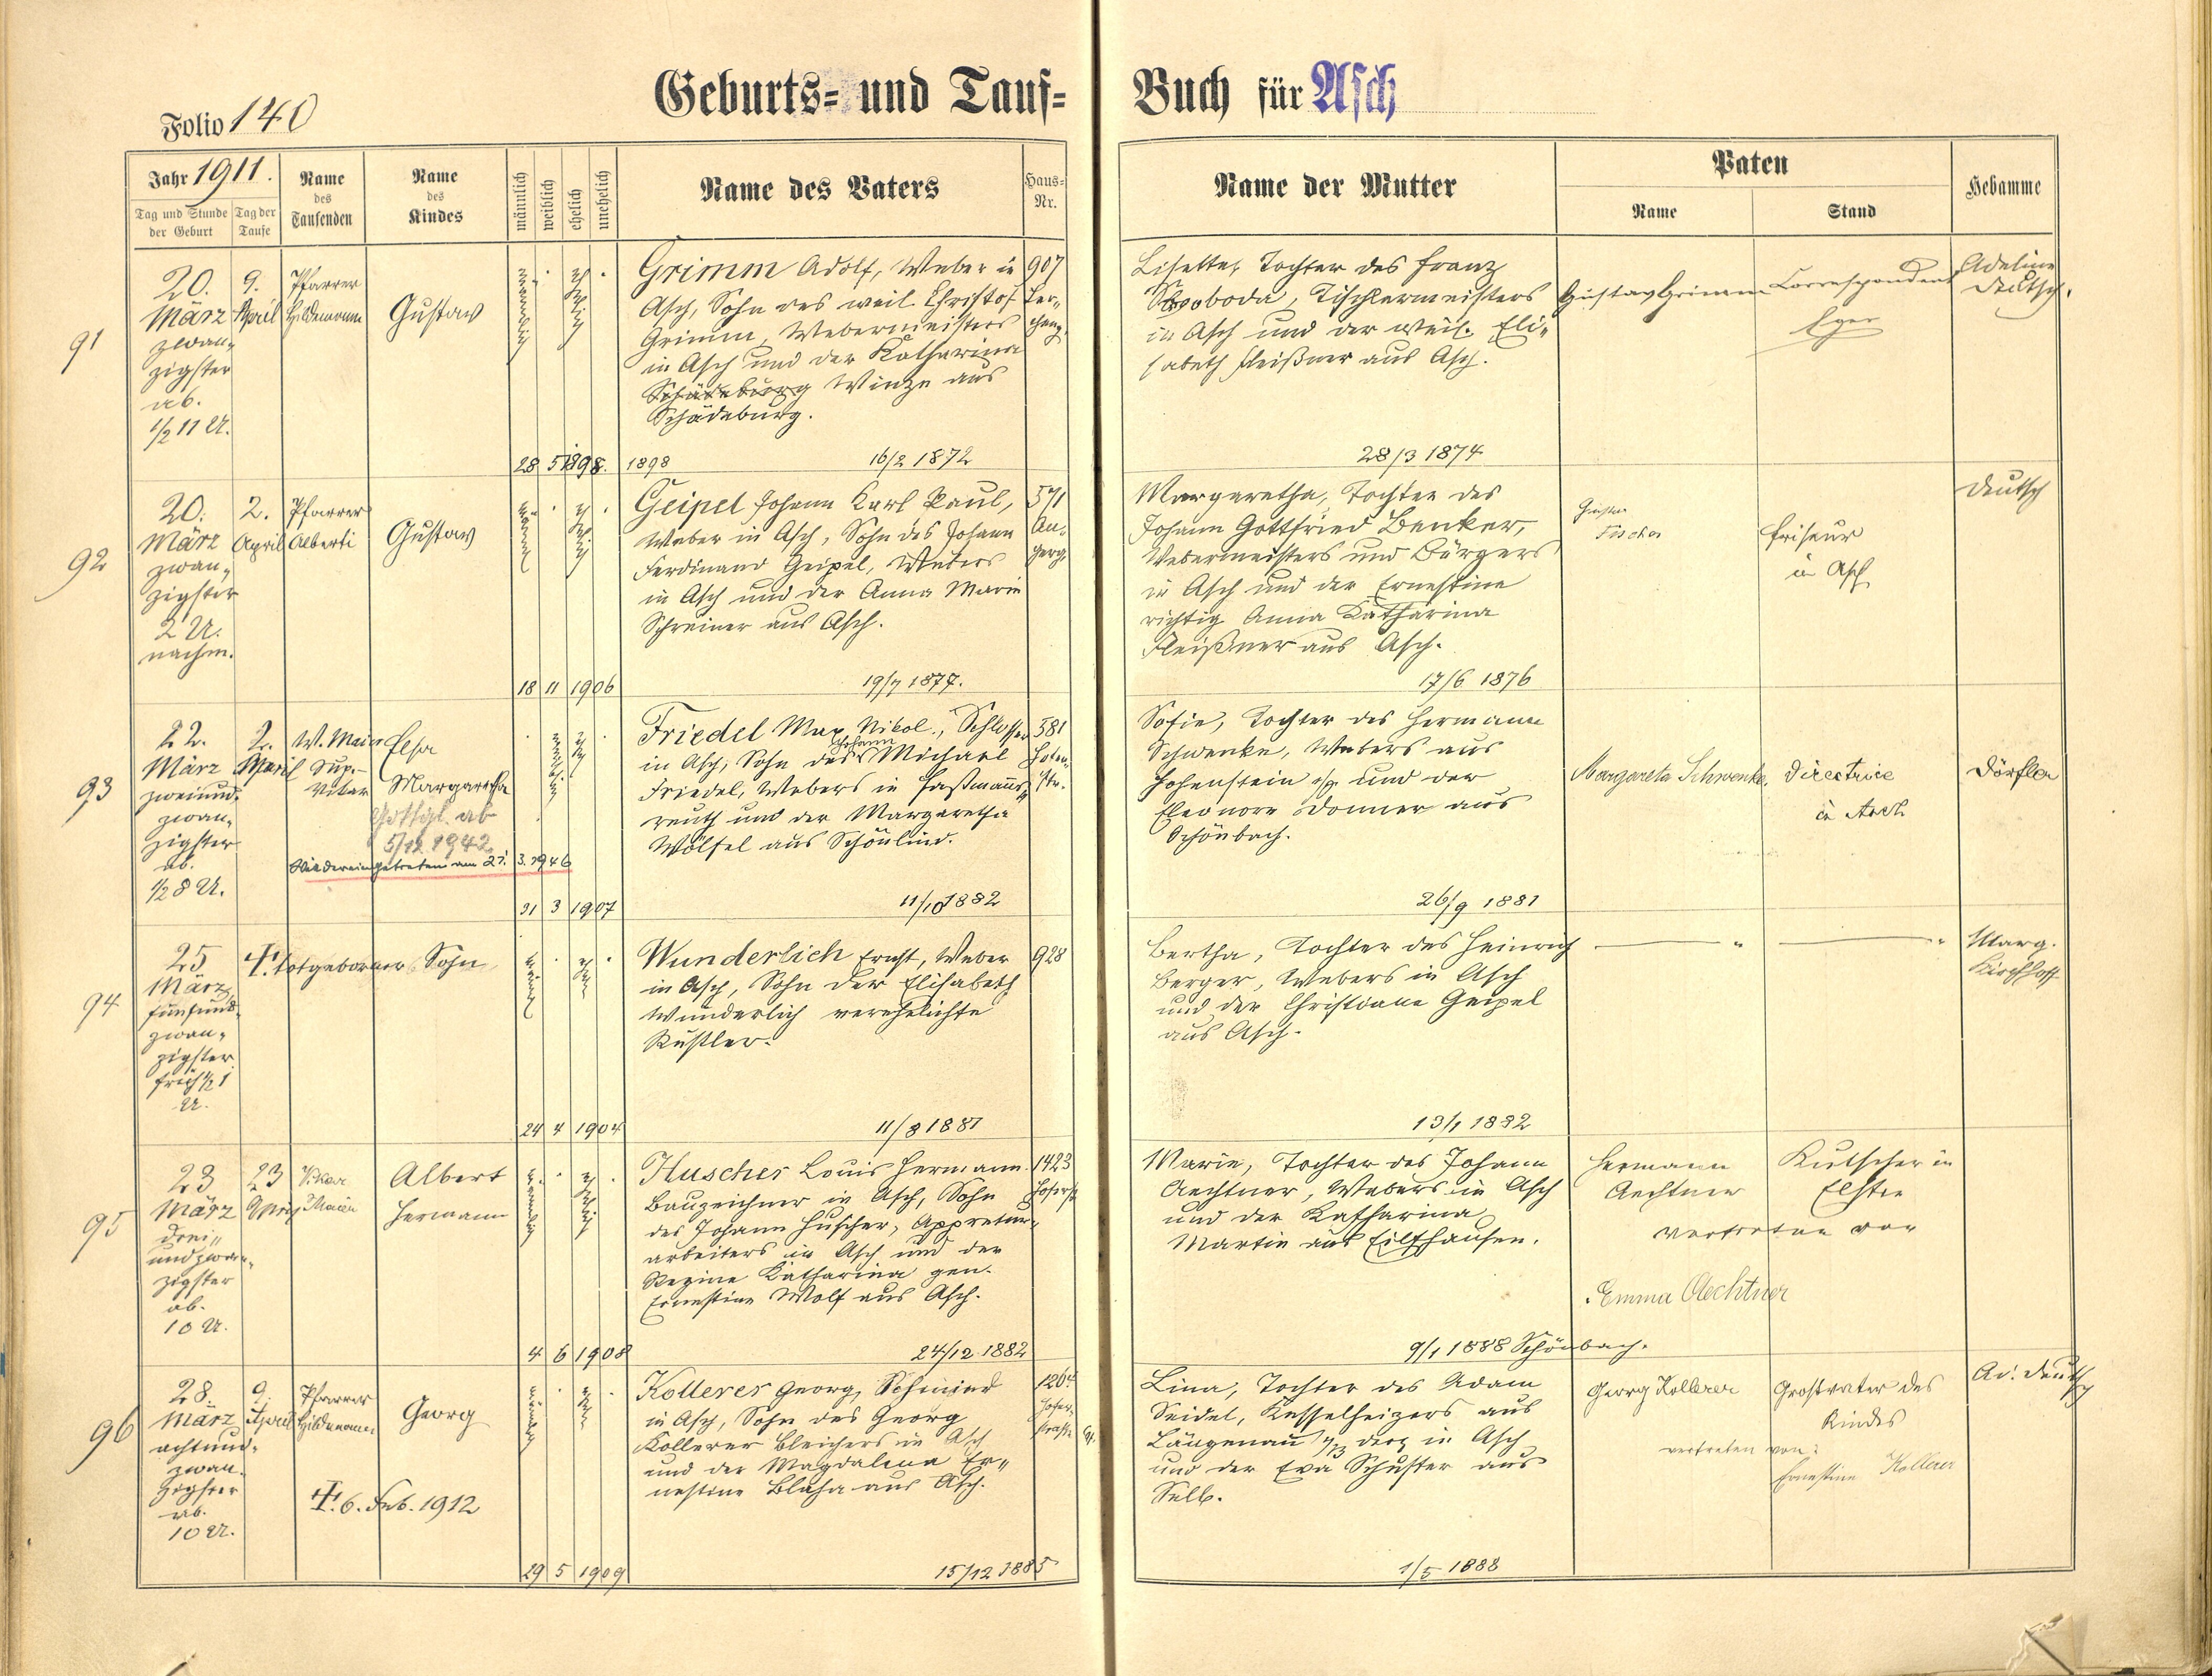 Folio 140
Geburts- und Tauf-
Buch für Asch
Jahr 1911.
Tag und Stunde der Geburt
Tag der Taufe
Name des Taufenden
Name des Kindes
männlich
weiblich
ehelich
unehelich
Name des Vaters
Haus-Nr.
Name der Mutter
Paten
Name
Stand
Hebamme
91
20.
März
zwan-
zigster
ab.
1/2 11 U.
9.
April
Pfarrer
Hildemann
Gustav
männlich
ehelich
Grimm Adolf, Weber in
Asch, Sohn des weil. Christof
Grimm, Webermeisters
in Asch und der Katharina
Schädeburg Winze aus
Schädeburg.
907
28 5 1898. 1898
16/2 1872
Lisette, Tochter des Franz
Swoboda, Tischlermeisters
in Asch und der weil. Eli-
sabeth Fleißner aus Asch.
28/3 1874
Gustav Grimm
Correspondent
Eger
Adeline
Deutsch.
92
20.
März
zwan-
zigster
2 U.
nachm.
2.
April
Pfarrer
Alberti
Gustav
männlich
ehelich
Geipel Johann Karl Paul,
Weber in Asch, Sohn des Johann
Ferdinand Geipel, Webers
in Asch und der Anna Marie
Schreiner aus Asch.
571
18 11 1906
19/7 1877.
Margaretha, Tochter des
Johann Gottfried Benker,
Webermeisters und Bürgers
in Asch und der Ernestine
richtig Anna Katharina
Fleißner aus Asch.
17/6 1876
Fischer
Friseur
in Asch
Deutsch
93
22.
März
zweiund-
zwan-
zigster
ab.
1/2 8 U.
2.
April
W. Maier
Sup.-
Vikar
Elsa
Margaretha
Gottgl. ab
5/12 1942
Wiedereingetreten am 21. 3. 1946
weiblich
ehelich
Friedel Max Nikol., Schlosser
in Asch, Sohn des Johann Michael
Friedel, Webers in Haßmanns-
reuth und der Margaretha
Wölfel aus Schönlind.
581
31 3 1907
11/10 1882
Sofie, Tochter des Hermann
Schwenke, Webers aus
Hohenstein und der
Eleonore Donner aus
Schönbach.
26/9 1881
Margareta Schwenke.
Directrice
in Asch
Dörfler
94
25
März
fünfund-
zwan-
zigster
früh 1/2 1
U.
†. totgeborner Sohn
männlich
ehelich
Wunderlich Ernst, Weber
in Asch, Sohn der Elisabeth
Wunderlich verehelichte
Küstler.
928
24 4 1904
11/8 1881
Bertha, Tochter des Heinrich
Berger, Webers in Asch
und der Christiane Geipel
aus Asch.
13/1 1882
Marg.
Kirchhoff
95
23
März
drei-
undzwan-
zigster
ab.
10 U.
23
April
Vikar
Maier
Albert
Hermann
männlich
ehelich
Huscher Louis Hermann
Bauzeichner in Asch, Sohn
des Johann Huscher, Appretur-
arbeiters in Asch und der
Regine Katharina gen.
Ernestine Wolf aus Asch.
1423
Hoferstr
4 6 1908
24/12 1882
Marie, Tochter des Johann
Aechtner, Webers in Asch
und der Katharina
Martin aus Eilfhausen.
9/1 1888 Schönbach.
Hermann
Aechtner
Kutscher in
Elster
vertreten von
Emma Aechtner
96
28.
März
achtund-
zwan-
zigster
ab.
10 U.
9.
April
Pfarrer
Hildemann
Georg
†. 6. Feb. 1912
männlich
ehelich
Kollerer Georg, Schmied
in Asch, Sohn des Georg
Kollerer Bleichers in Asch
und der Magdalena Er-
nestine Blaha aus Asch.
1264
Hofer-
straße
29 5 1909
15/12 1885
Lina, Tochter des Adam
Seidel, Kesselheizers aus
Längenau derz. in Asch
und der Eva Schuster aus
Selb.
1/5 1888
Georg Kollerer
Großvater des
Kindes
vertreten von:
Ernestine Kollerer
Ad. Deutsch